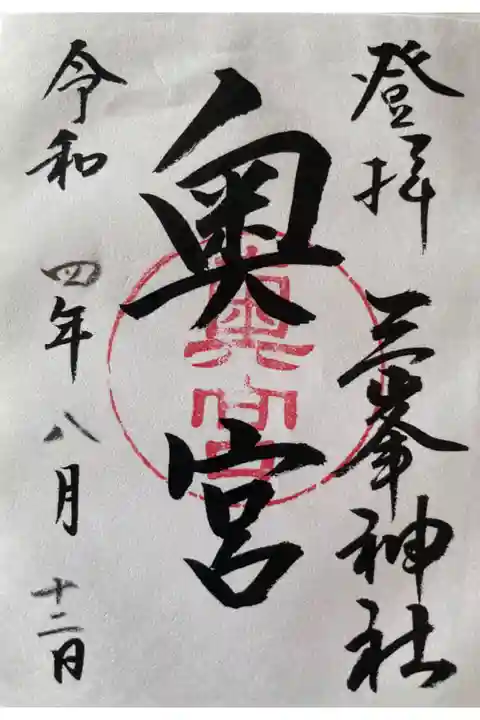 登拝
三峯神社
奥宮
奥宮
令和四年八月十二日